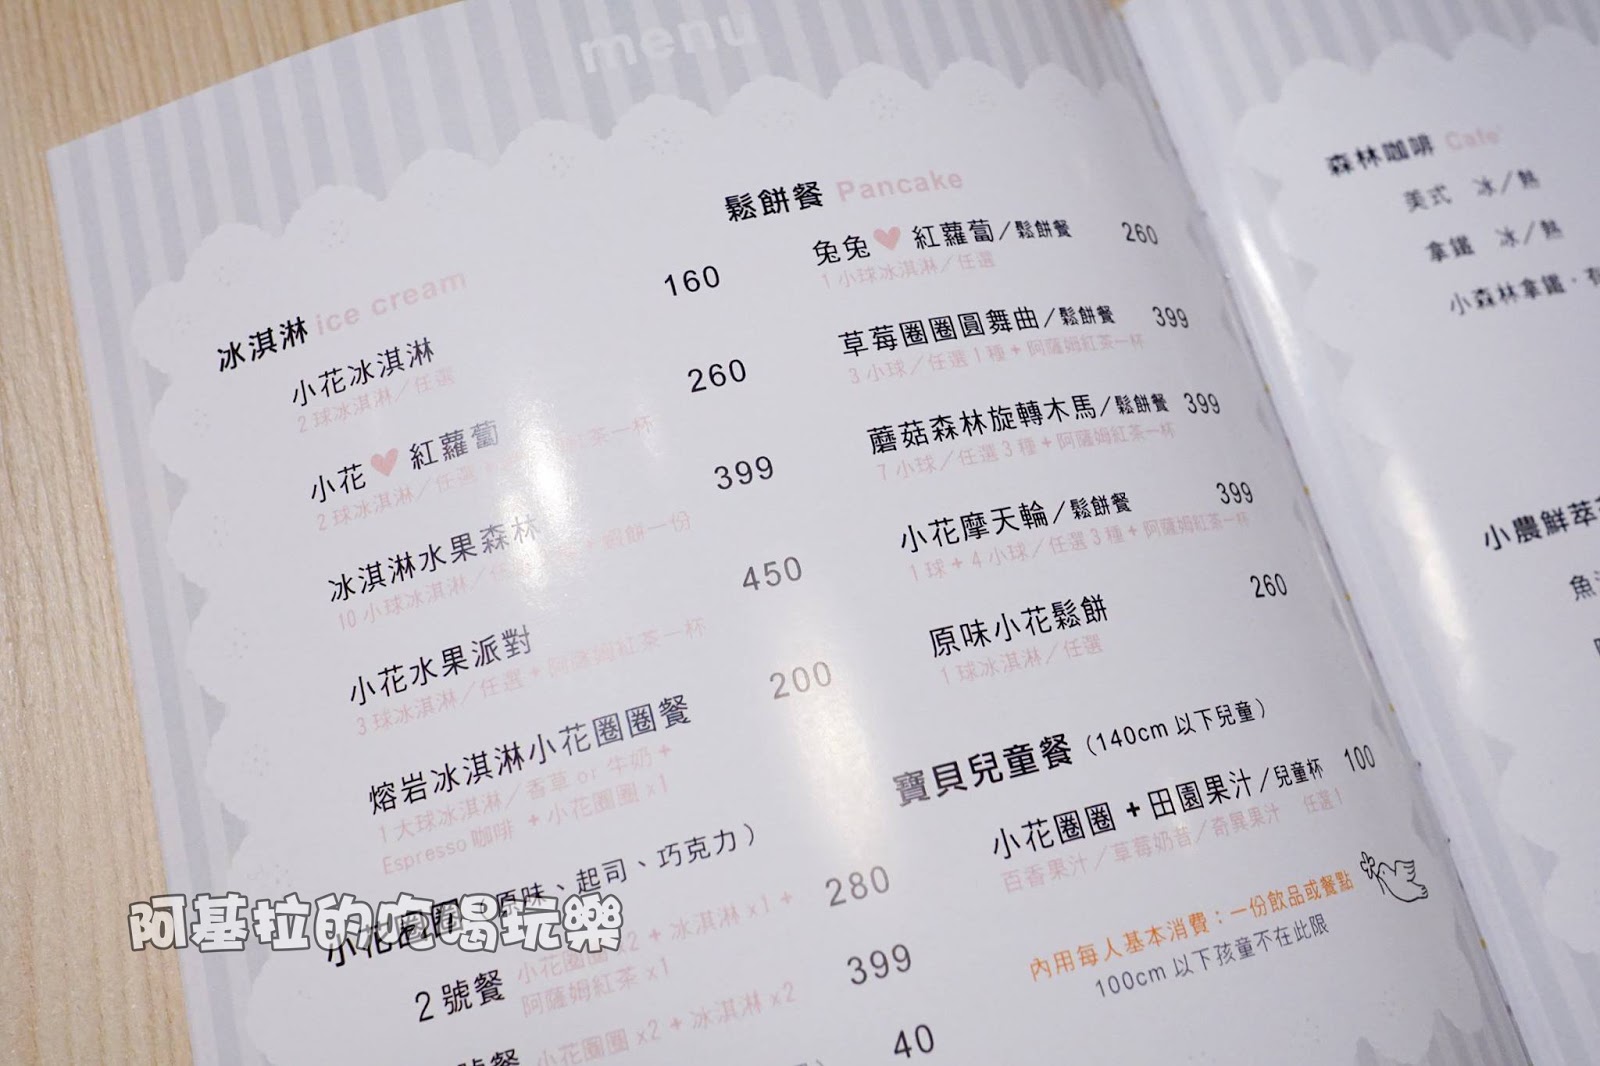 menu
冰淇淋 ice cream
小花冰淇淋 160
2球冰淇淋／任選
小花♥紅蘿蔔 260
2球冰淇淋／任選 紅茶一杯
冰淇淋水果森林 399
10小球冰淇淋／任 + 蝦餅一份
小花水果派對 450
3球冰淇淋／任選+阿薩姆紅茶一杯
熔岩冰淇淋小花圈圈餐 200
1大球冰淇淋／香草 or 牛奶 +
Espresso 咖啡 + 小花圈圈 x1
小花圈圈（原味、起司、巧克力）
2號餐 小花圈圈 x2 + 冰淇淋 x1 + 280
阿薩姆紅茶 x1
號餐 小花圈圈 x2 + 冰淇淋 x2 399
40
鬆餅餐 Pancake
兔兔♥紅蘿蔔／鬆餅餐 260
1小球冰淇淋／任選
草莓圈圈圓舞曲／鬆餅餐 399
3小球／任選1種+阿薩姆紅茶一杯
蘑菇森林旋轉木馬／鬆餅餐 399
7小球／任選3種+阿薩姆紅茶一杯
小花摩天輪／鬆餅餐 399
1球+4小球／任選3種+阿薩姆紅茶一杯
原味小花鬆餅 260
1球冰淇淋／任選
寶貝兒童餐（140cm 以下兒童）
小花圈圈 + 田園果汁／兒童杯 100
百香果汁／草莓奶昔／奇異果汁 任選1
內用每人基本消費：一份飲品或餐點
100cm 以下孩童不在此限
森林咖啡 Cafe'
美式 冰／熱
拿鐵 冰／熱
小森林拿鐵．
小農鮮萃
阿基拉的吃喝玩樂